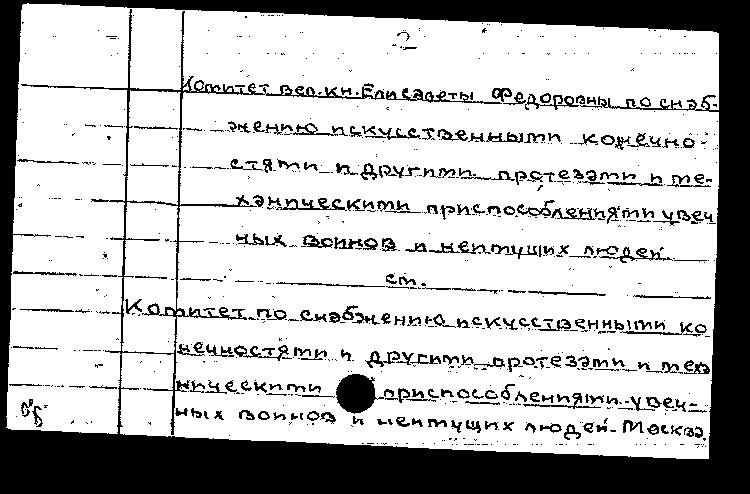 2
Комитет вел.кн.Елисаветы Федоровны по снаб-
жению искусственными конечно-
стями и другими протезами и ме-
ханическими приспособлениями увеч
ных воинов и неимущих людей.
см.
Комитет по снабжению искусственными ко
нечностями и другими протезами и меха
ническими приспособлениями увеч-
ных воинов и неимущих людей-Москва.